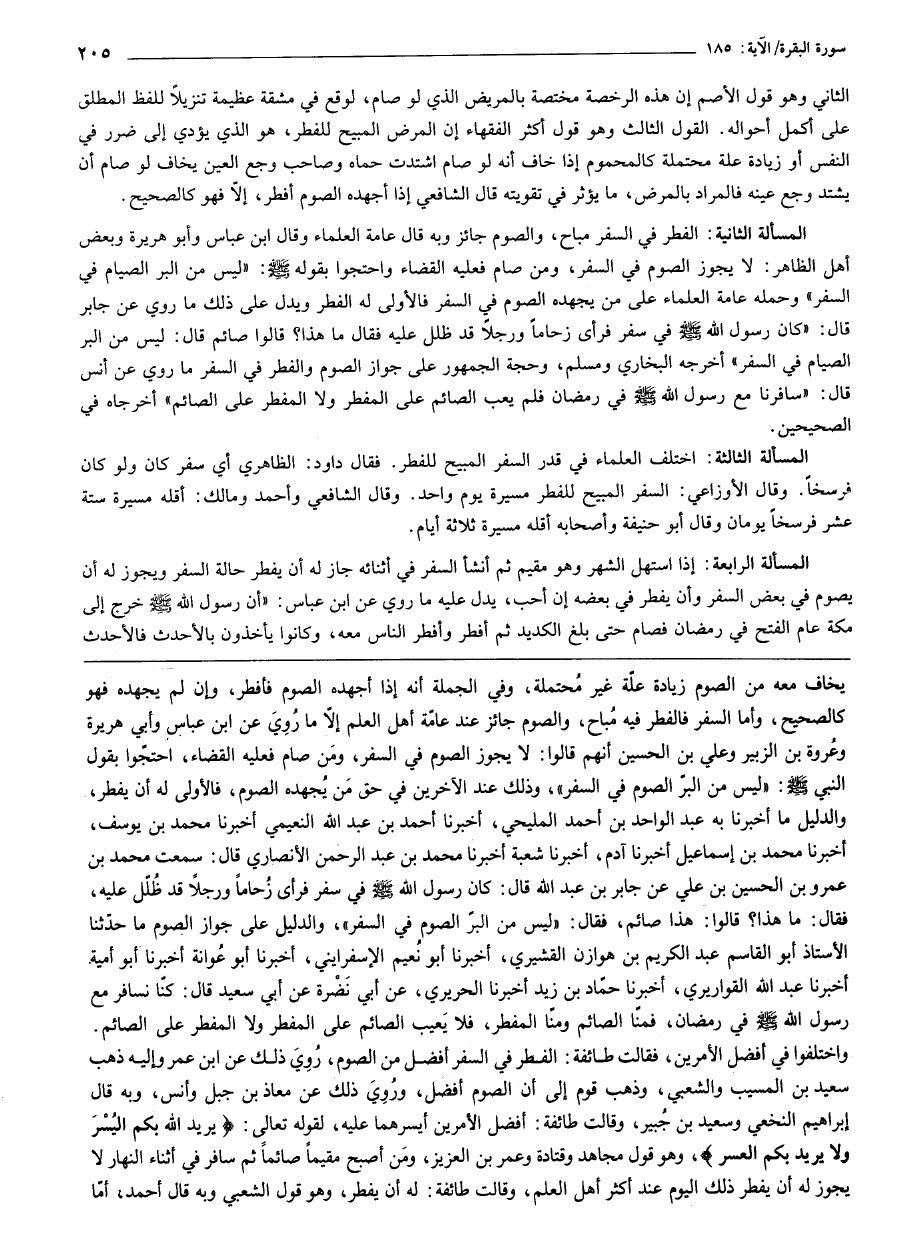 سورة البقرة/ الآية: ١٨٥ ٢٠٥
الثاني وهو قول الأصم إن هذه الرخصة مختصة بالمريض الذي لو صام، لوقع في مشقة عظيمة تنزيلاً للفظ المطلق
على أكمل أحواله. القول الثالث وهو قول أكثر الفقهاء إن المرض المبيح للفطر، هو الذي يؤدي إلى ضرر في
النفس أو زيادة علة محتملة كالمحموم إذا خاف أنه لو صام اشتدت حماه وصاحب وجع العين يخاف لو صام أن
يشتد وجع عينه فالمراد بالمرض، ما يؤثر في تقويته قال الشافعي إذا أجهده الصوم أفطر، إلاّ فهو كالصحيح.
المسألة الثانية: الفطر في السفر مباح، والصوم جائز وبه قال عامة العلماء وقال ابن عباس وأبو هريرة وبعض
أهل الظاهر: لا يجوز الصوم في السفر، ومن صام فعليه القضاء واحتجوا بقوله ﷺ: «ليس من البر الصيام في
السفر» وحمله عامة العلماء على من يجهده الصوم في السفر فالأولى له الفطر ويدل على ذلك ما روي عن جابر
قال: «كان رسول الله ﷺ في سفر فرأى زحاماً ورجلاً قد ظلل عليه فقال ما هذا؟ قالوا صائم قال: ليس من البر
الصيام في السفر» أخرجه البخاري ومسلم، وحجة الجمهور على جواز الصوم والفطر في السفر ما روي عن أنس
قال: «سافرنا مع رسول الله ﷺ في رمضان فلم يعب الصائم على المفطر ولا المفطر على الصائم» أخرجاه في
الصحيحين.
المسألة الثالثة: اختلف العلماء في قدر السفر المبيح للفطر. فقال داود: الظاهري أي سفر كان ولو كان
فرسخاً. وقال الأوزاعي: السفر المبيح للفطر مسيرة يوم واحد. وقال الشافعي وأحمد ومالك: أقله مسيرة ستة
عشر فرسخاً يومان وقال أبو حنيفة وأصحابه أقله مسيرة ثلاثة أيام.
المسألة الرابعة: إذا استهل الشهر وهو مقيم ثم أنشأ السفر في أثنائه جاز له أن يفطر حالة السفر ويجوز له أن
يصوم في بعض السفر وأن يفطر في بعضه إن أحب، يدل عليه ما روي عن ابن عباس: «أن رسول الله ﷺ خرج إلى
مكة عام الفتح في رمضان فصام حتى بلغ الكديد ثم أفطر وأفطر الناس معه، وكانوا يأخذون بالأحدث فالأحدث
يخاف معه من الصوم زيادة علّة غير مُحتملة، وفي الجملة أنه إذا أجهده الصوم فأفطر، وإن لم يجهده فهو
كالصحيح، وأما السفر فالفطر فيه مُباح، والصوم جائز عند عامّة أهل العلم إلاّ ما رُوِيَ عن ابن عباس وأبي هريرة
وعُروة بن الزبير وعلي بن الحسين أنهم قالوا: لا يجوز الصوم في السفر، ومَن صام فعليه القضاء، احتجّوا بقول
النبي ﷺ: «ليس من البرّ الصوم في السفر»، وذلك عند الآخرين في حق مَن يُجهده الصوم، فالأولى له أن يفطر،
والدليل ما أخبرنا به عبد الواحد بن أحمد المليحي، أخبرنا أحمد بن عبد الله النعيمي أخبرنا محمد بن يوسف،
أخبرنا محمد بن إسماعيل أخبرنا آدم، أخبرنا شعبة أخبرنا محمد بن عبد الرحمن الأنصاري قال: سمعت محمد بن
عمرو بن الحسين بن علي عن جابر بن عبد الله قال: كان رسول الله ﷺ في سفر فرأى زُحاماً ورجلاً قد ظُلّل عليه،
فقال: ما هذا؟ قالوا: هذا صائم، فقال: «ليس من البرّ الصوم في السفر»، والدليل على جواز الصوم ما حدّثنا
الأستاذ أبو القاسم عبد الكريم بن هوازن القشيري، أخبرنا أبو نُعيم الإسفرايني، أخبرنا أبو عُوانة أخبرنا أبو أمية
أخبرنا عبد الله القواريري، أخبرنا حمّاد بن زيد أخبرنا الحريري، عن أبي نَضْرة عن أبي سعيد قال: كنّا نسافر مع
رسول الله ﷺ في رمضان، فمنّا الصائم ومنّا المفطر، فلا يَعيب الصائم على المفطر ولا المفطر على الصائم.
واختلفوا في أفضل الأمرين، فقالت طائفة: الفطر في السفر أفضل من الصوم، رُوِيَ ذلك عن ابن عمر وإليه ذهب
سعيد بن المسيب والشعبي، وذهب قوم إلى أن الصوم أفضل، ورُوِيَ ذلك عن معاذ بن جبل وأنس، وبه قال
إبراهيم النخعي وسعيد بن جُبير، وقالت طائفة: أفضل الأمرين أيسرهما عليه، لقوله تعالى: ﴿ يريد الله بكم اليُسْرَ
ولا يريد بكم العسر ﴾، وهو قول مجاهد وقتادة وعمر بن العزيز، ومَن أصبح مقيماً صائماً ثم سافر في أثناء النهار لا
يجوز له أن يفطر ذلك اليوم عند أكثر أهل العلم، وقالت طائفة: له أن يفطر، وهو قول الشعبي وبه قال أحمد، أمّا